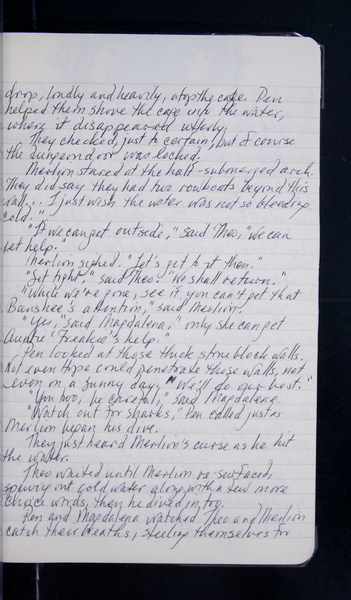 drop, loudly and heavily, atop the cage. Pen
helped them shove the cage into the water,
where it disappeared utterly.
They checked, just to certain, but of course
the dungeon door was locked.
Merlion stared at the half-submerged arch.
"They did say they had two rowboats beyond this
wall... I just wish the water was not so bleeding
cold."
"If we can get outside," said Theo, "we can
get help."
Merlion sighed. "Let's get to it then."
"Sit tight," said Theo. "We shall return."
"While we're gone, see if you can't get that
Banshee's attention," said Merlion.
"Yes," said Magdalena, "only she can get
Auntie Freakie's help."
Pen looked at those thick stone block walls.
Not even Hope could penetrate these walls, not
even on a sunny day. "We'll do our best."
"You two, be careful," said Magdalena.
"Watch out for sharks," Pen called just as
Merlion began his dive.
They just heard Merlion's curse as he hit
the water.
Theo waited until Merlion re-surfaced,
spewing out cold water along with a few more
choice words, then he dived in, too.
Pen and Magdalena watched Theo and Merlion
catch their breaths, steeling themselves for